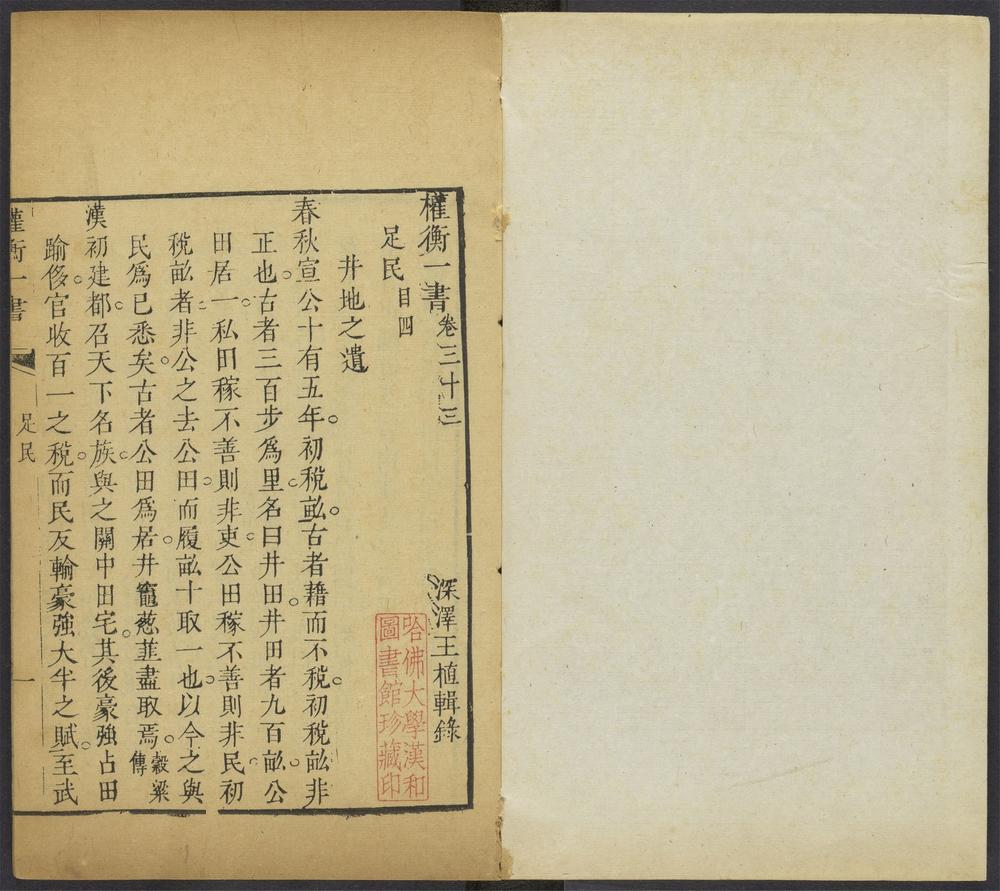 權衡一書卷三十三
深澤王植輯錄
足民目四
井地之遺
春秋宣公十有五年初稅畝古者藉而不稅初稅畝非
正也古者三百步爲里名曰井田井田者九百畝公
田居一私田稼不善則非吏公田稼不善則非民初
稅畝者非公之去公田而履畝十取一也以今之與
民爲已悉矣古者公田爲居井竈葱韮盡取焉穀粱傳
漢初建都召天下名族與之關中田宅其後豪強占田
踰侈官收百一之稅而民反輸豪強大半之賦至武
權衡一書
足民
一
哈佛大學漢和
圖書館珍藏印